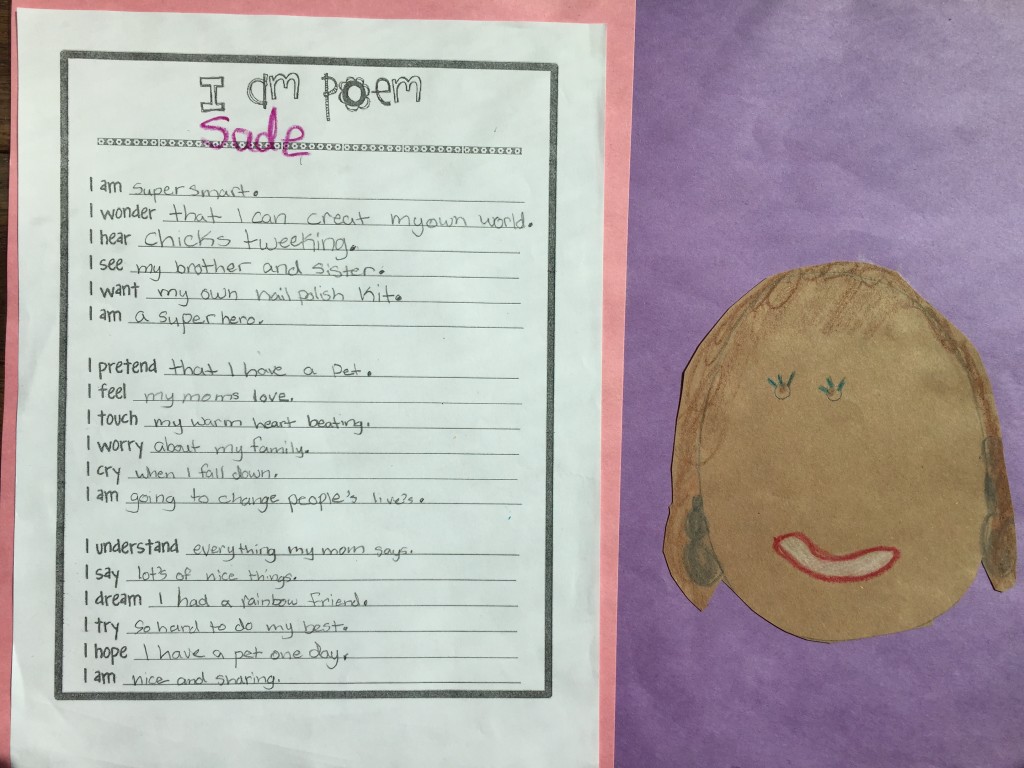 I am poem
Sade
I am super smart.
I wonder that I can creat my own world.
I hear chicks tweeking.
I see my brother and sister.
I want my own nail polish kit.
I am a super hero.
I pretend that I have a pet.
I feel my moms love.
I touch my warm heart beating.
I worry about my family.
I cry when I fall down.
I am going to change people's live's.
I understand everything my mom says.
I say lot's of nice things.
I dream I had a rainbow friend.
I try so hard to do my best.
I hope I have a pet one day.
I am nice and sharing.